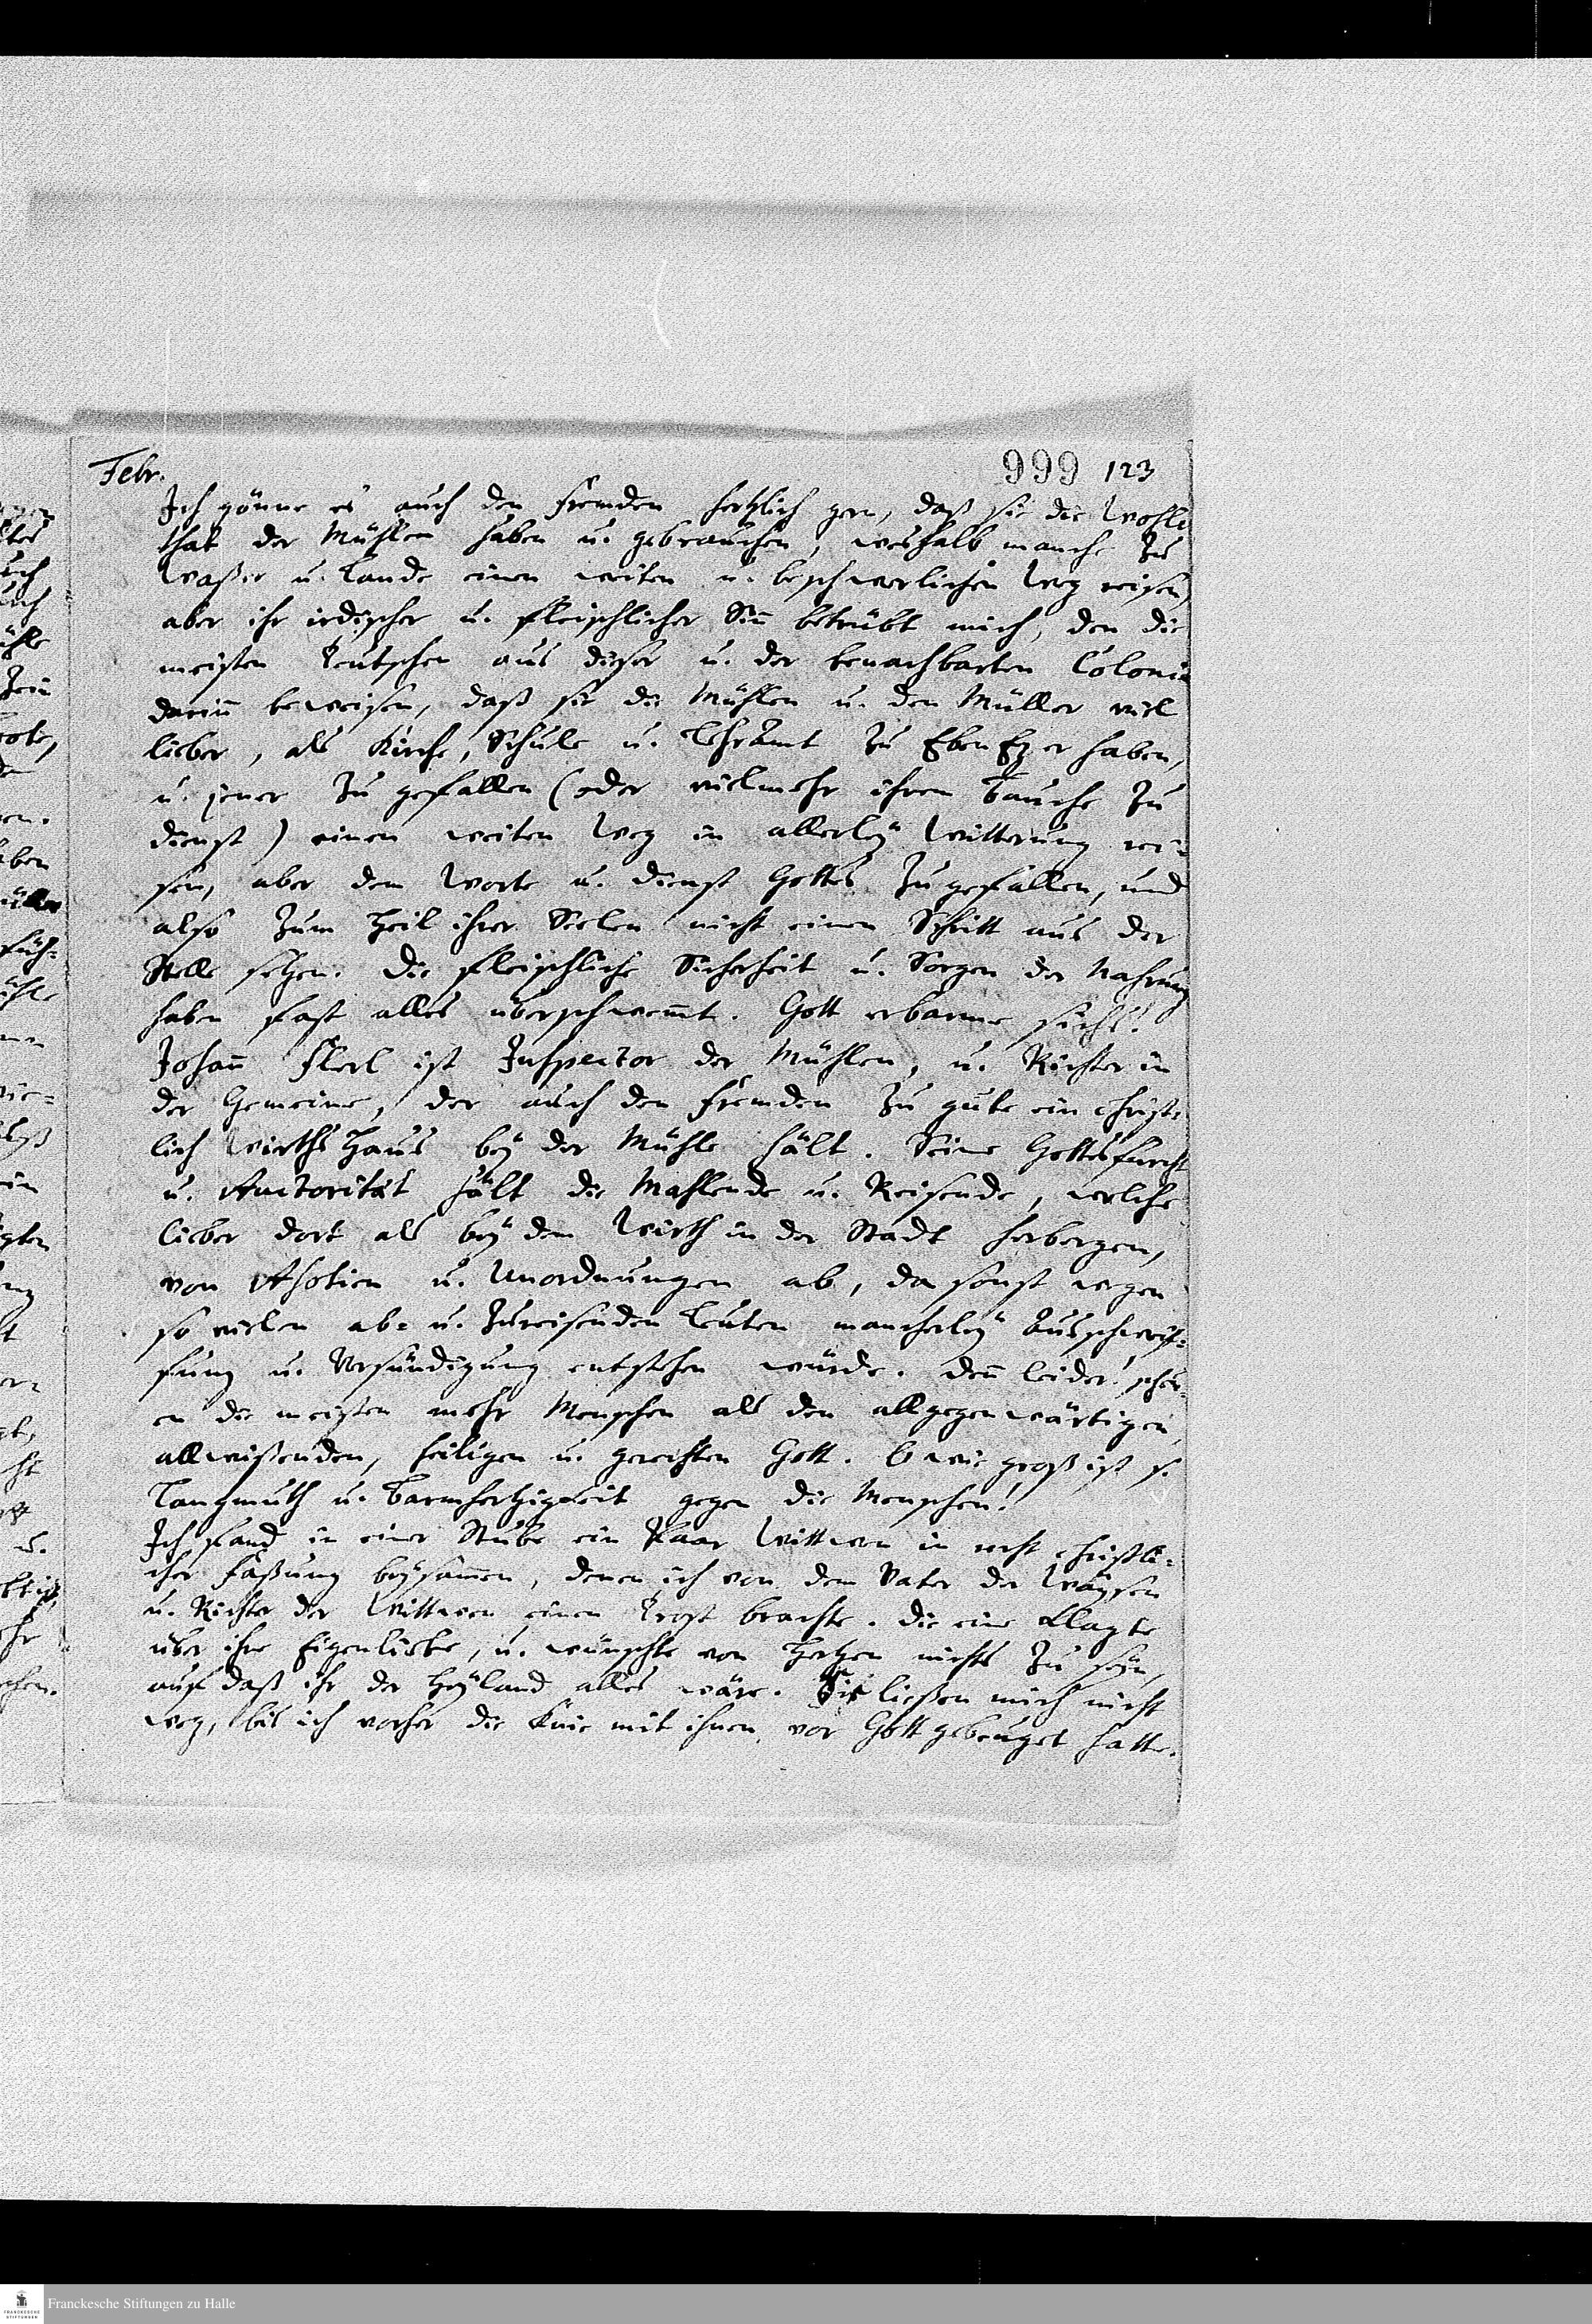 Febr. 999 123
Ich gönne es auch den Fremden hertzlich gern, daß sie die Wohl
that der Mühlen haben u. gebrauchen, weshalb manche zu
Waßer u. Lande einen weiten u. beschwerlichen Weg reisen,
aber ihr irdischer u. fleischlicher Siñ betrübt mich, den die
meisten Teutschen aus dieser u. der benachbarten Colonie
dariñ beweisen, daß sie die Mühlen u. den Müller viel
lieber, als Kirche, Schule u. Lehramt zu EbenEzer haben,
u. jener zu gefallen (oder vielmehr ihrem Bauche zu
dienst) einen weiten Weg in allerleÿ Witterung rei-
sen, aber dem Worte u. Dienst Gottes zu gefallen, und
also zum Heil ihrer Seelen nicht einen Schritt aus der
Stelle setzen. Die fleischliche Sicherheit u. Sorgen der Nahrung
haben fast alles überschwem̃t. Gott erbarme sichs!
Johañ Flerl ist Inspector der Mühlen, u. Richter in
der Gemeine, der auch den Fremden zu gute ein christ-
lich Wirthshaus beÿ der Mühle hält. Seine Gottesfurcht
u. Auctorität hält die Mahlende u. Reisende, welche
lieber dort als beÿ dem Wirth in der Stadt herbergen,
von Asotien u. Unordnungen ab, da sonst wegen
so vielen ab- u. zureisenden Leuten mancherleÿ Ausschweif-
fung u. Versündigung entstehen würde. Deñ leider! scheu-
en die meisten mehr Menschen als den allgegenwärtigen,
allwißenden, heiligen u. gerechten Gott. O wie groß ist s.
Langmuth u. Barmhertzigkeit gegen die Menschen!
Ich fand in einer Stube ein Paar Wittwen in recht christli-
cher Faßung beÿsam̃en, denen ich von dem Vater der Waÿsen
u. Richter der Wittwen einen Trost brachte. Die eine klagte
über ihre Eigenliebe, u. wünschte von Hertzen nichts zu seÿn,
auf daß ihr der Heÿland alles wäre. Sie ließen mich nicht
weg, bis ich vorher die Knie mit ihnen vor Gott gebeuget hatte.
Franckesche Stiftungen zu Halle